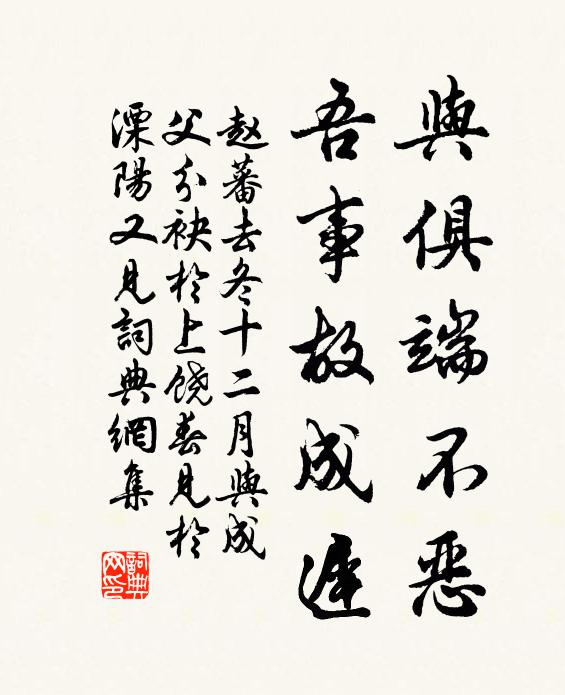 與俱端不恶
吾事故成遲
赵蕃去冬十二月與成
父分袂於上饶春見於
溧陽又見詞典網集
詞典網印